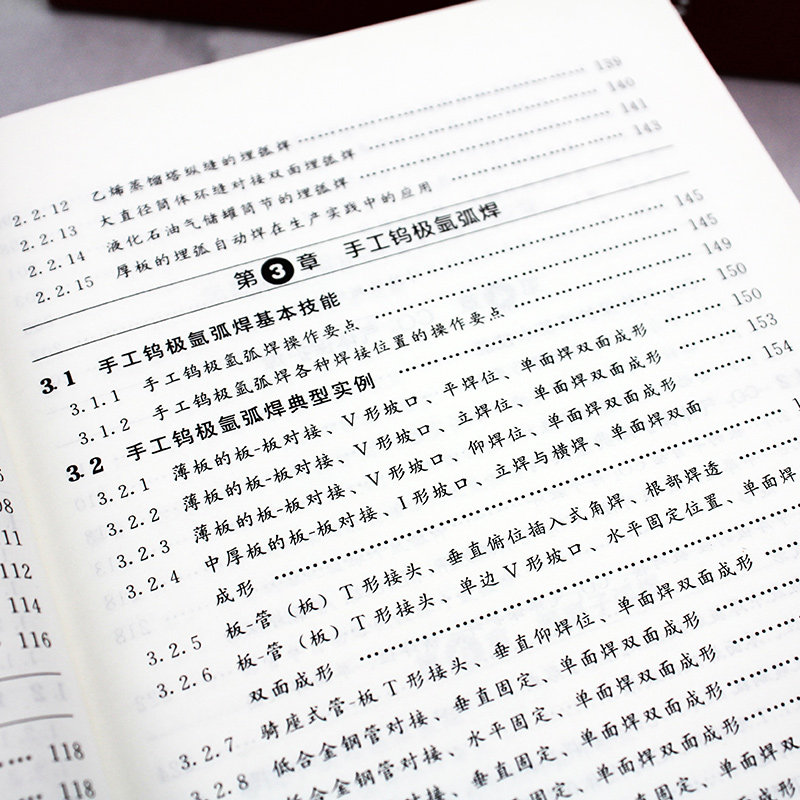 2.2.12 乙烯蒸馏塔纵缝的埋弧焊 …… 139
2.2.13 大直径筒体环缝对接双面埋弧焊 …… 140
2.2.14 液化石油气储罐筒节的埋弧焊 …… 141
2.2.15 厚板的埋弧自动焊在生产实践中的应用 …… 143
第3章 手工钨极氩弧焊
3.1 手工钨极氩弧焊基本技能 …… 145
3.1.1 手工钨极氩弧焊操作要点 …… 145
3.1.2 手工钨极氩弧焊各种焊接位置的操作要点 …… 149
3.2 手工钨极氩弧焊典型实例 …… 150
3.2.1 薄板的板-板对接、V形坡口、平焊位、单面焊双面成形 …… 150
3.2.2 薄板的板-板对接、V形坡口、立焊位、单面焊双面成形 …… 153
3.2.3 薄板的板-板对接、V形坡口、仰焊位、单面焊双面成形 …… 154
3.2.4 中厚板的板-板对接、I形坡口、立焊与横焊、单面焊双面
成形 ……
3.2.5 板-管（板）T形接头、垂直俯位插入式角焊、根部焊透 ……
3.2.6 板-管（板）T形接头、单边V形坡口、水平固定位置、单面焊
双面成形 ……
3.2.7 骑座式管-板T形接头、垂直仰焊位、单面焊双面成形 ……
3.2.8 低合金钢管对接、垂直固定、单面焊双面成形 ……
低合金钢管对接、水平固定、单面焊双面成形 ……
垂直固定、单面焊双面成形
112
114
116
118
118